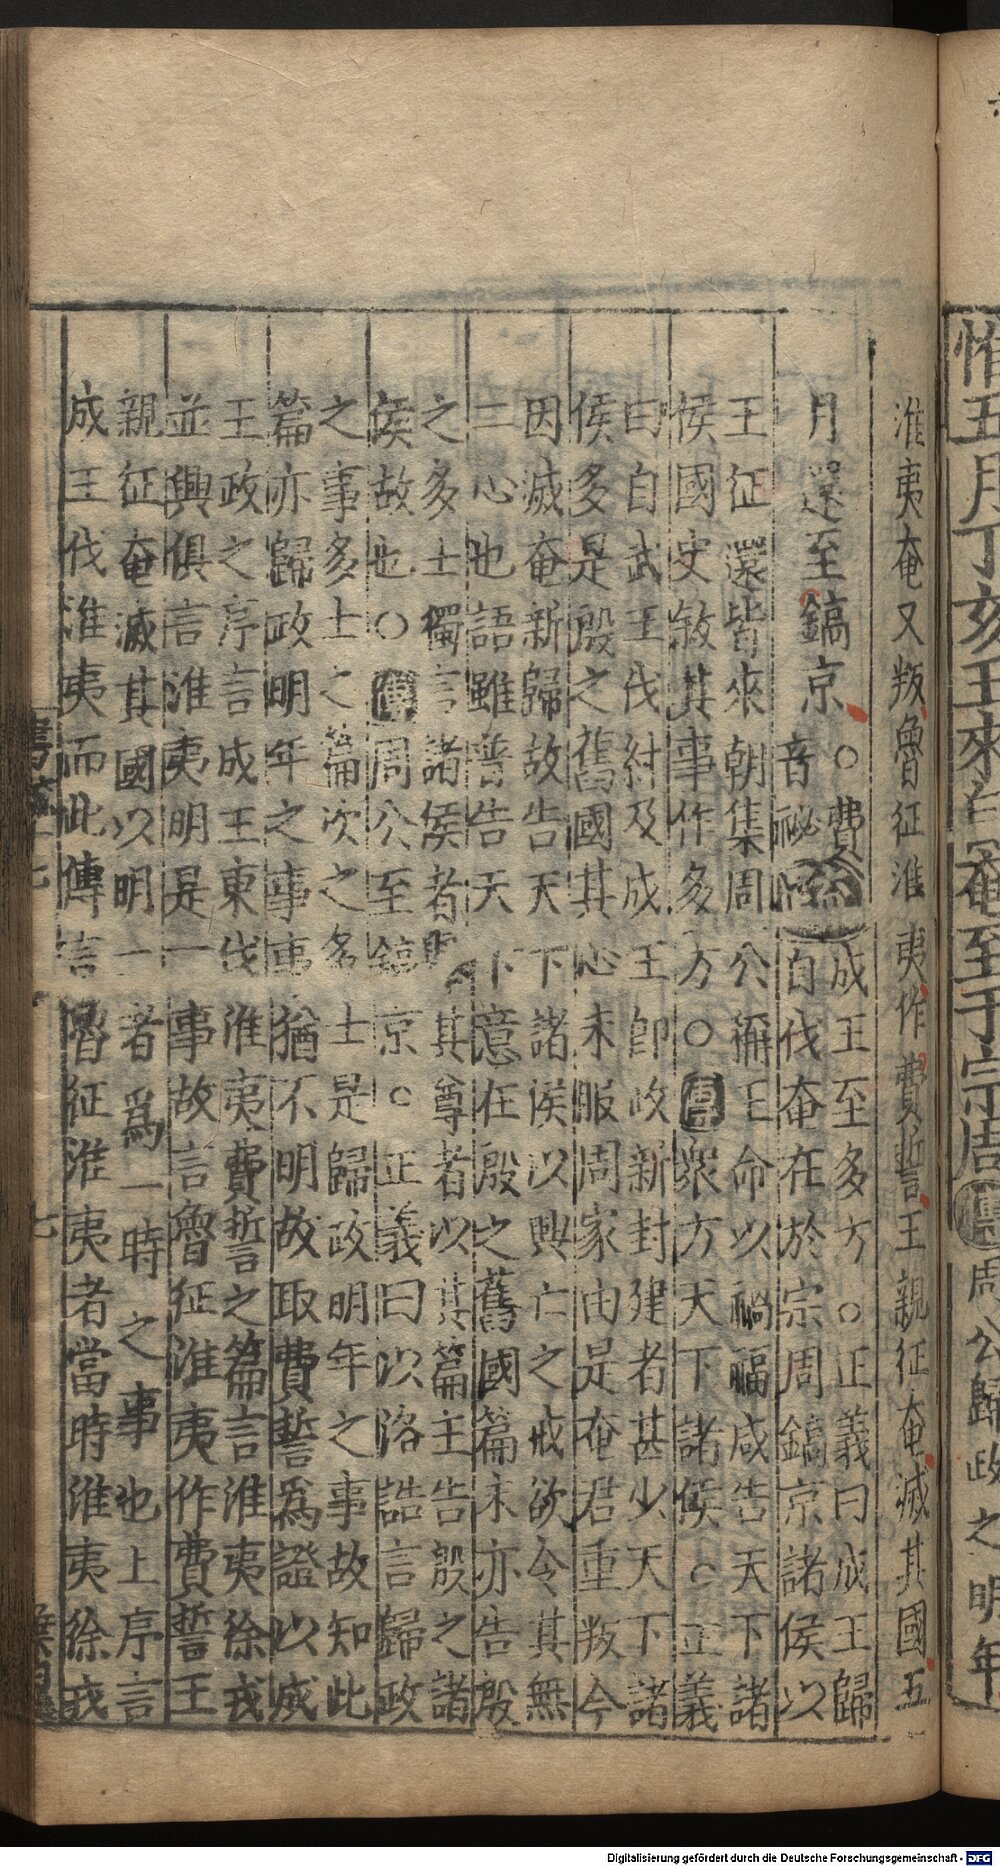 惟五月丁亥王來自奄至于宗周傳周公歸政之明年
淮夷奄又叛魯征淮夷作費誓王親征奄滅其國五
月還至鎬京
○費
音秘
疏
成王至多方○正義曰成王歸
自伐奄在於宗周鎬京諸侯以
王征還皆來朝集周公稱王命以禍福咸告天下諸
侯國史敘其事作多方○傳衆方天下諸侯○正義
曰自武王伐紂及成王卽政新封建者甚少天下諸
侯多是殷之舊國其心未服周家由是奄君重叛今
因滅奄新歸故告天下諸侯以興亡之戒欲令其無
二心也語雖普告天下意在殷之舊國篇末亦告殷
之多士獨言諸侯者其尊者以其篇主告殷之諸
侯故也○傳周公至鎬京○正義曰以洛誥言歸政
之事多士之篇次之多士是歸政明年之事故知此
篇亦歸政明年之事事猶不明故取費誓爲證以成
王政之序言成王東伐淮夷費誓之篇言淮夷徐戎
並興俱言淮夷明是一事故言魯征淮夷作費誓王
親征奄滅其國以明二者爲一時之事也上序言
成王伐淮夷而此傳言魯征淮夷者當時淮夷徐戎
七
Digitalisierung gefördert durch die Deutsche Forschungsgemeinschaft - DFG